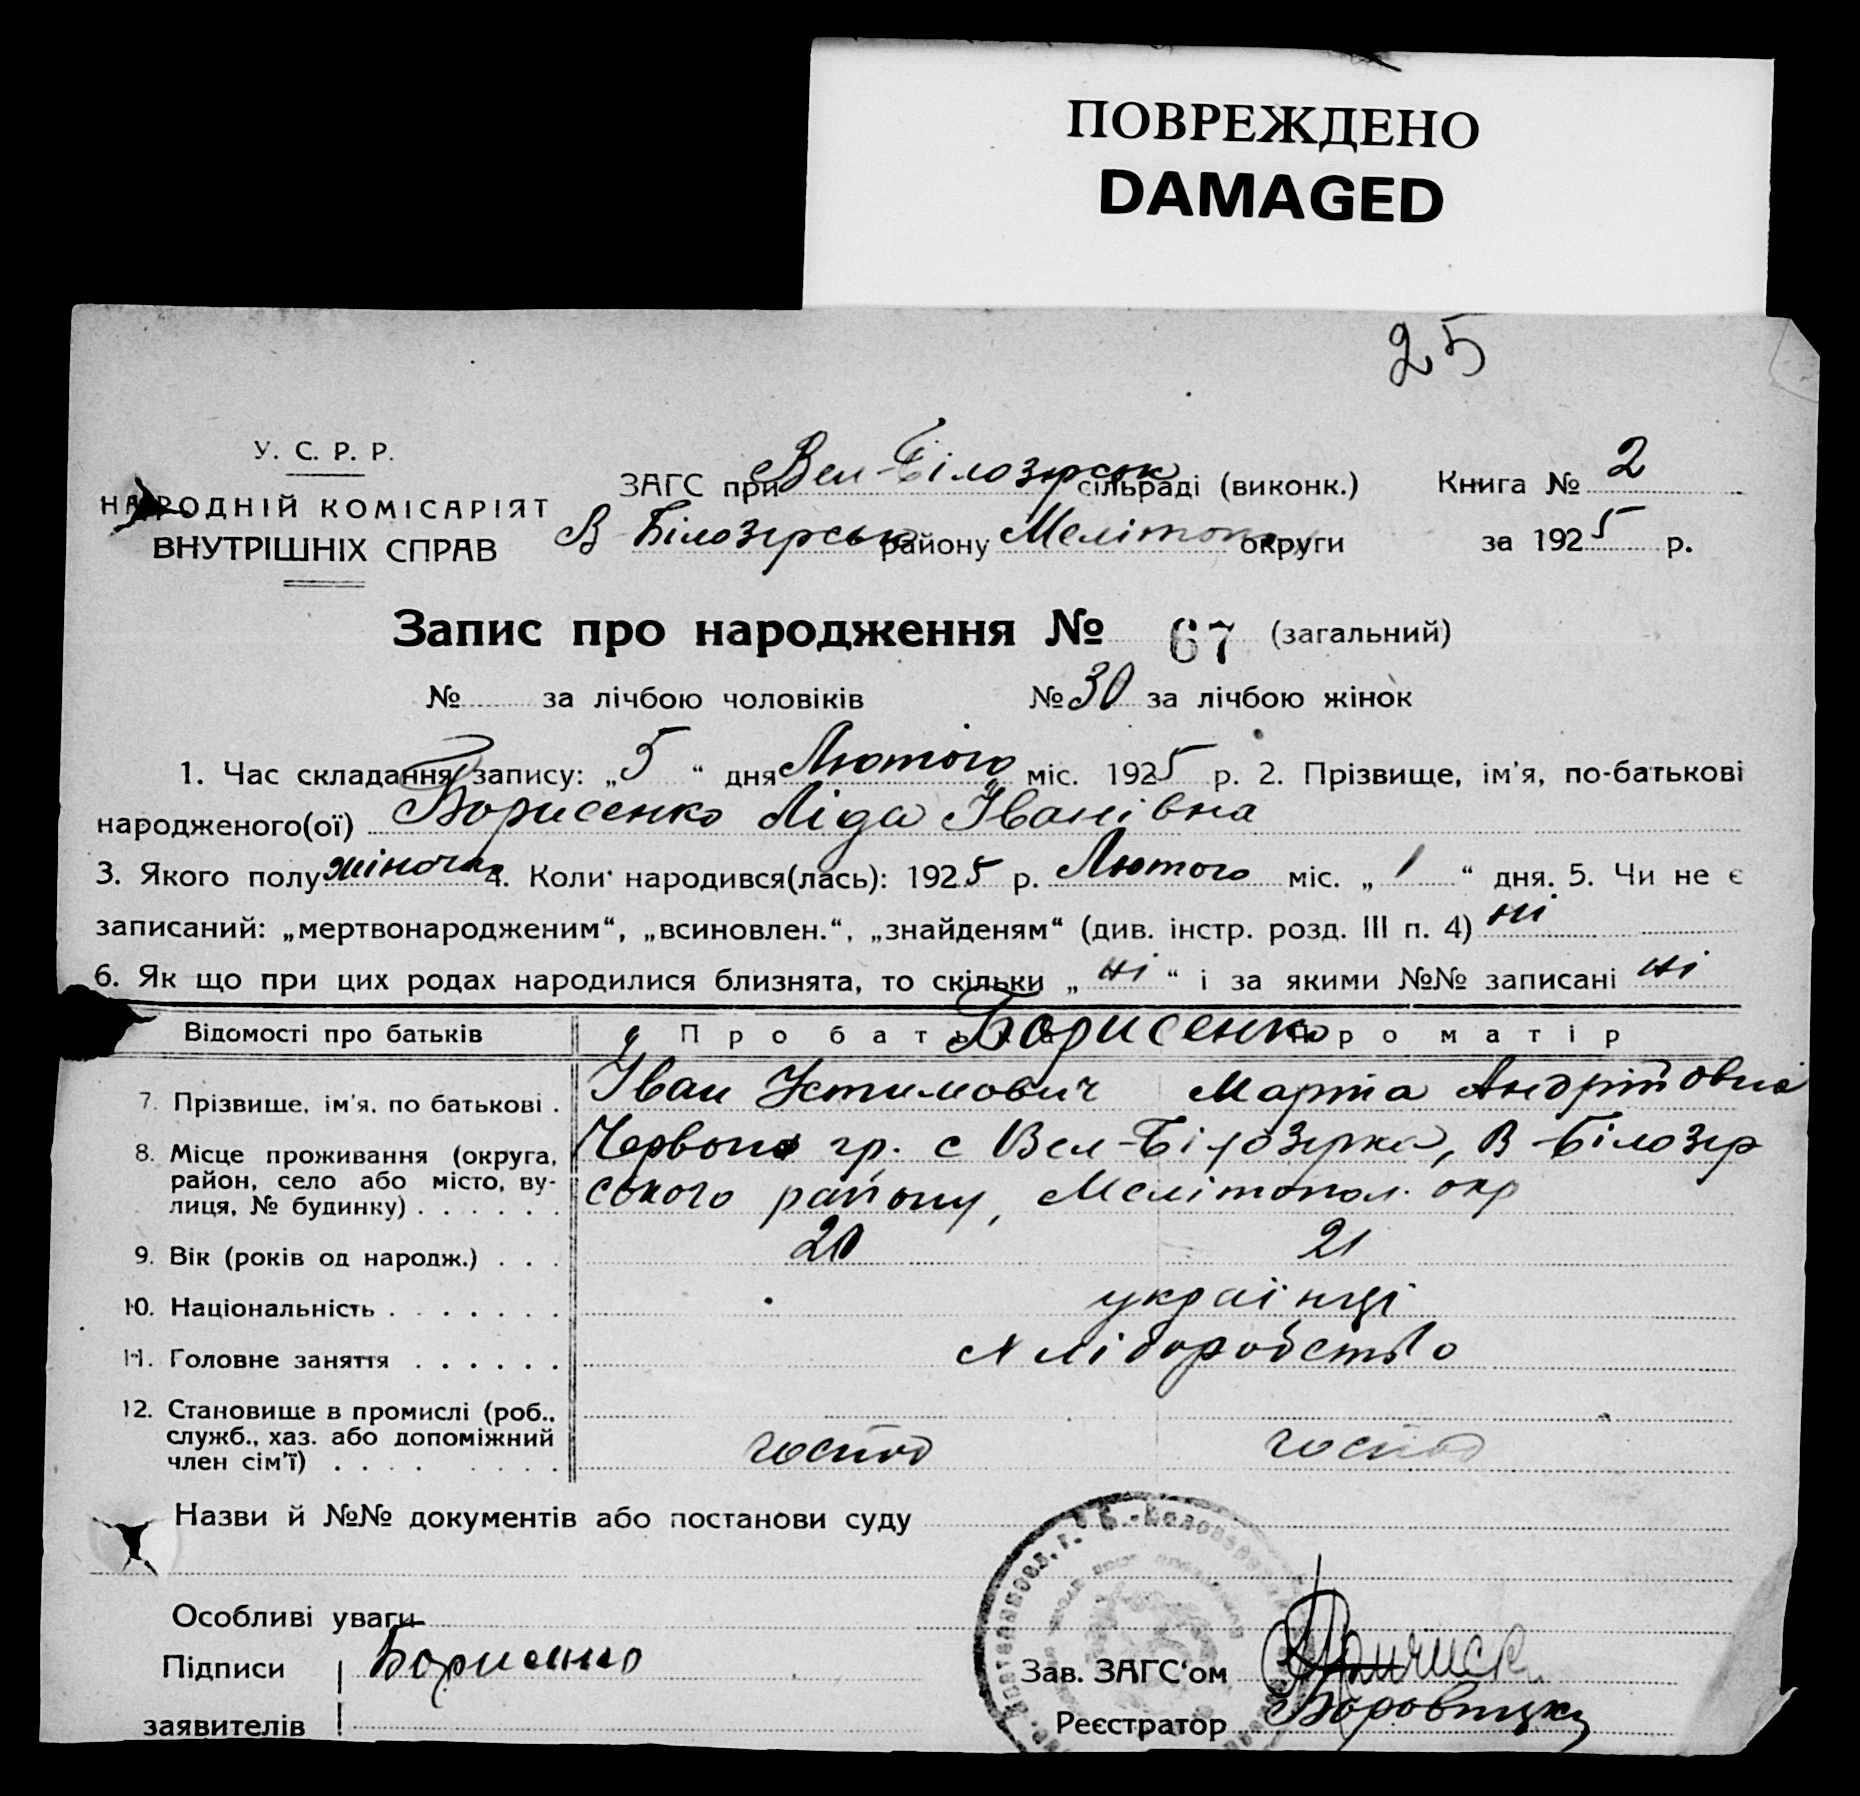 ПОВРЕЖДЕНО
DAMAGED
25
У. С. Р. Р.
НАРОДНІЙ КОМІСАРІЯТ
ВНУТРІШНІХ СПРАВ
ЗАГС при Вел-Білозірськ сільраді (виконк.) Книга № 2
В Білозірськ району Мелітоп округи за 1925 р.
Запис про народження № 67 (загальний)
№ за лічбою чоловіків № 30 за лічбою жінок
1. Час складання запису: „5“ дня Лютого міс. 1925 р. 2. Прізвище, ім'я, по-батькові
народженого(ої) Борисенко Ліда Іванівна
3. Якого полу жіноча 4. Коли народився(лась): 1925 р. Лютого міс. „1“ дня. 5. Чи не є
записаний: „мертвонародженим“, „всиновлен.“, „знайденям“ (див. інстр. розд. III п. 4) ні
6. Як що при цих родах народилися близнята, то скільки „ні“ і за якими №№ записані ні
Відомості про батьків Про батька Про матір
Борисенко
7. Прізвище, ім'я, по батькові . Іван Устимович Марта Андріївна
8. Місце проживання (округа, район, село або місто, вулиця, № будинку) . . . . . .
гр. с Вел-Білозірка, В-Білозір
ського району, Мелітопол. окр
9. Вік (років од народж.) . . . 20 21
10. Національність . . . . . . . українці
11. Головне заняття . . . . . . хліборобство
12. Становище в промислі (роб., служб., хаз. або допоміжний член сім'ї) . . . . . . . .
господ господ
Назви й №№ документів або постанови суду
Особливі уваги
Підписи Борисенко Зав. ЗАГС'ом
заявителів Реєстратор